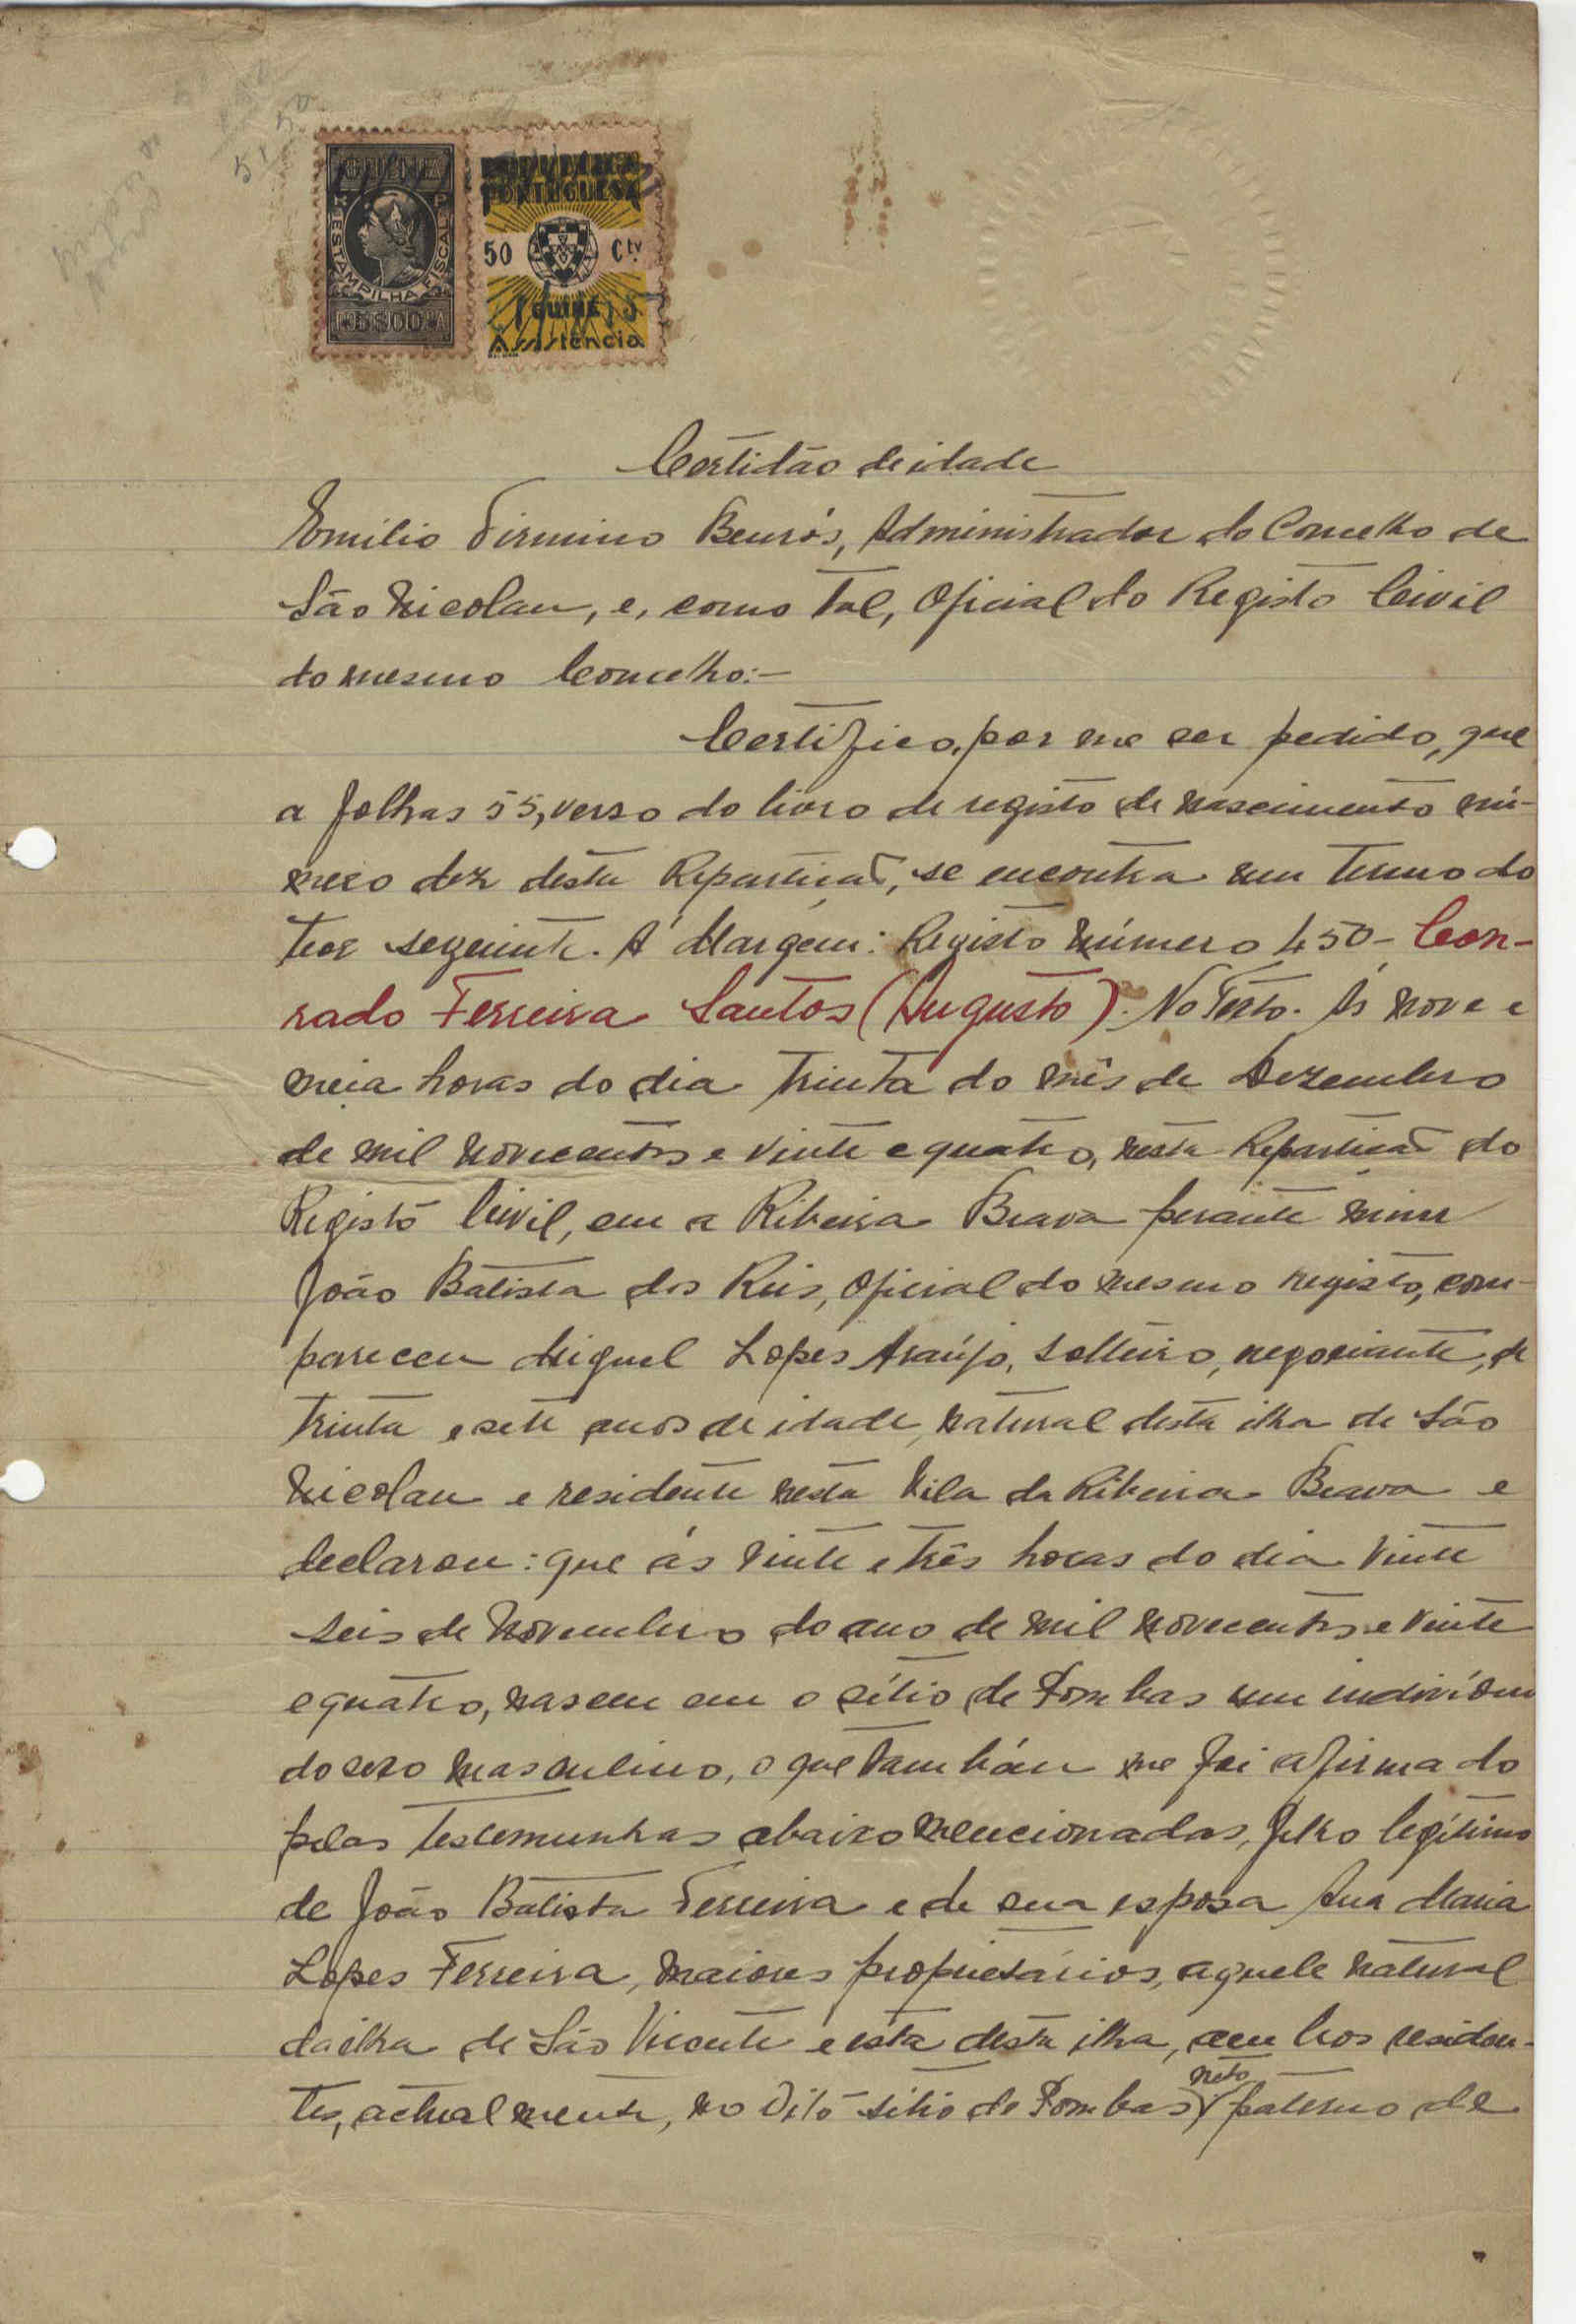 GUINÉ
ESTAMPILHA FISCAL
5$00
REPUBLICA
PORTUGUESA
50 Ctv
GUINÉ
Assistência
Certidão de idade
Emilio Firmino Benrós, Administrador do Concelho de
São Nicolau, e, como tal, Oficial do Registo Civil
do mesmo Concelho:-
Certifico, por me ser pedido, que
a folhas 55, verso do livro de registo de nascimento nú-
mero dez desta Repartição, se encontra um termo do
teor seguinte. Á Margem: Registo número 450- Con-
rado Ferreira Santos (Augusto). No Texto. Ás nove e
meia horas do dia trinta do mês de Dezembro
de mil novecentos e vinte e quatro, nesta Repartição do
Registo Civil, em a Ribeira Brava perante mim
João Batista dos Reis, Oficial do mesmo registo, com-
pareceu Miguel Lopes Araújo, solteiro, negociante, de
trinta e sete anos de idade, natural desta ilha de São
Nicolau e residente nesta Vila da Ribeira Brava e
declarou: que ás vinte e três horas do dia vinte
seis de Novembro do ano de mil novecentos e vinte
e quatro, nasceu em o sítio de Pombas um indivíduo
do sexo masculino, o que tambám me foi afirmado
pelas testemunhas abaixo mencionadas, filho legítimo
de João Batista Ferreira e de sua esposa Ana Maria
Lopes Ferreira, maiores proprietários, aquele natural
da ilha de São Vicente e esta desta ilha, ambos residen-
tes, actualmente, no dito sítio de Pombas, neto paterno de